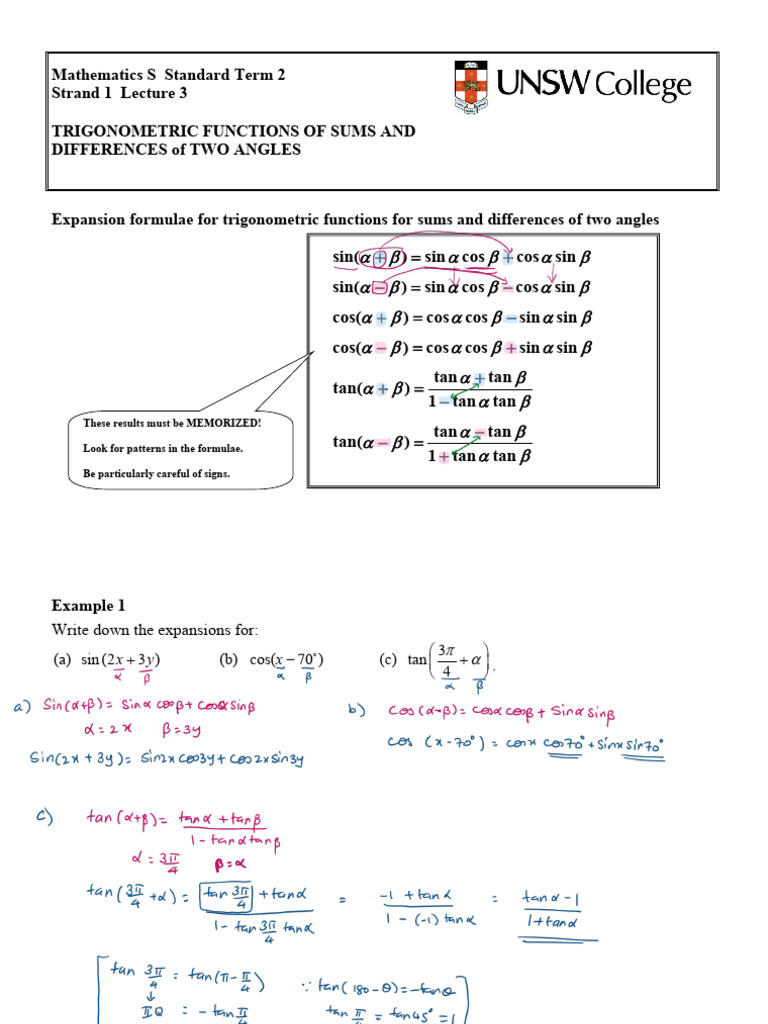 Mathematics S Standard Term 2
Strand 1 Lecture 3
UNSW College
TRIGONOMETRIC FUNCTIONS OF SUMS AND
DIFFERENCES of TWO ANGLES
Expansion formulae for trigonometric functions for sums and differences of two angles
sin(α + β) = sin α cos β + cos α sin β
sin(α − β) = sin α cos β − cos α sin β
cos(α + β) = cos α cos β − sin α sin β
cos(α − β) = cos α cos β + sin α sin β
tan(α + β) = (tan α + tan β) / (1 − tan α tan β)
tan(α − β) = (tan α − tan β) / (1 + tan α tan β)
These results must be MEMORIZED!
Look for patterns in the formulae.
Be particularly careful of signs.
Example 1
Write down the expansions for:
(a) sin(2x + 3y) (b) cos(x − 70°) (c) tan(3π/4 + α).
α β α β α β
a) Sin(α+β) = Sinα cosβ + cosα sinβ
α = 2x β = 3y
Sin(2x + 3y) = Sin2x cos3y + cos2x sin3y
b) cos(α-β) = cosα cosβ + Sinα sinβ
cos (x - 70°) = cosx cos70° + Sinx sin70°
c) tan(α+β) = (tanα + tanβ) / (1 - tanα tanβ)
α = 3π/4 β = α
tan(3π/4 + α) = (tan 3π/4 + tanα) / (1 - tan 3π/4 tanα) = (-1 + tanα) / (1 - (-1) tanα) = (tanα - 1) / (1 + tanα)
tan 3π/4 = tan(π - π/4) ∵ tan(180 - θ) = -tanθ
↓
IIQ = - tan π/4 tan π/4 = tan45° = 1